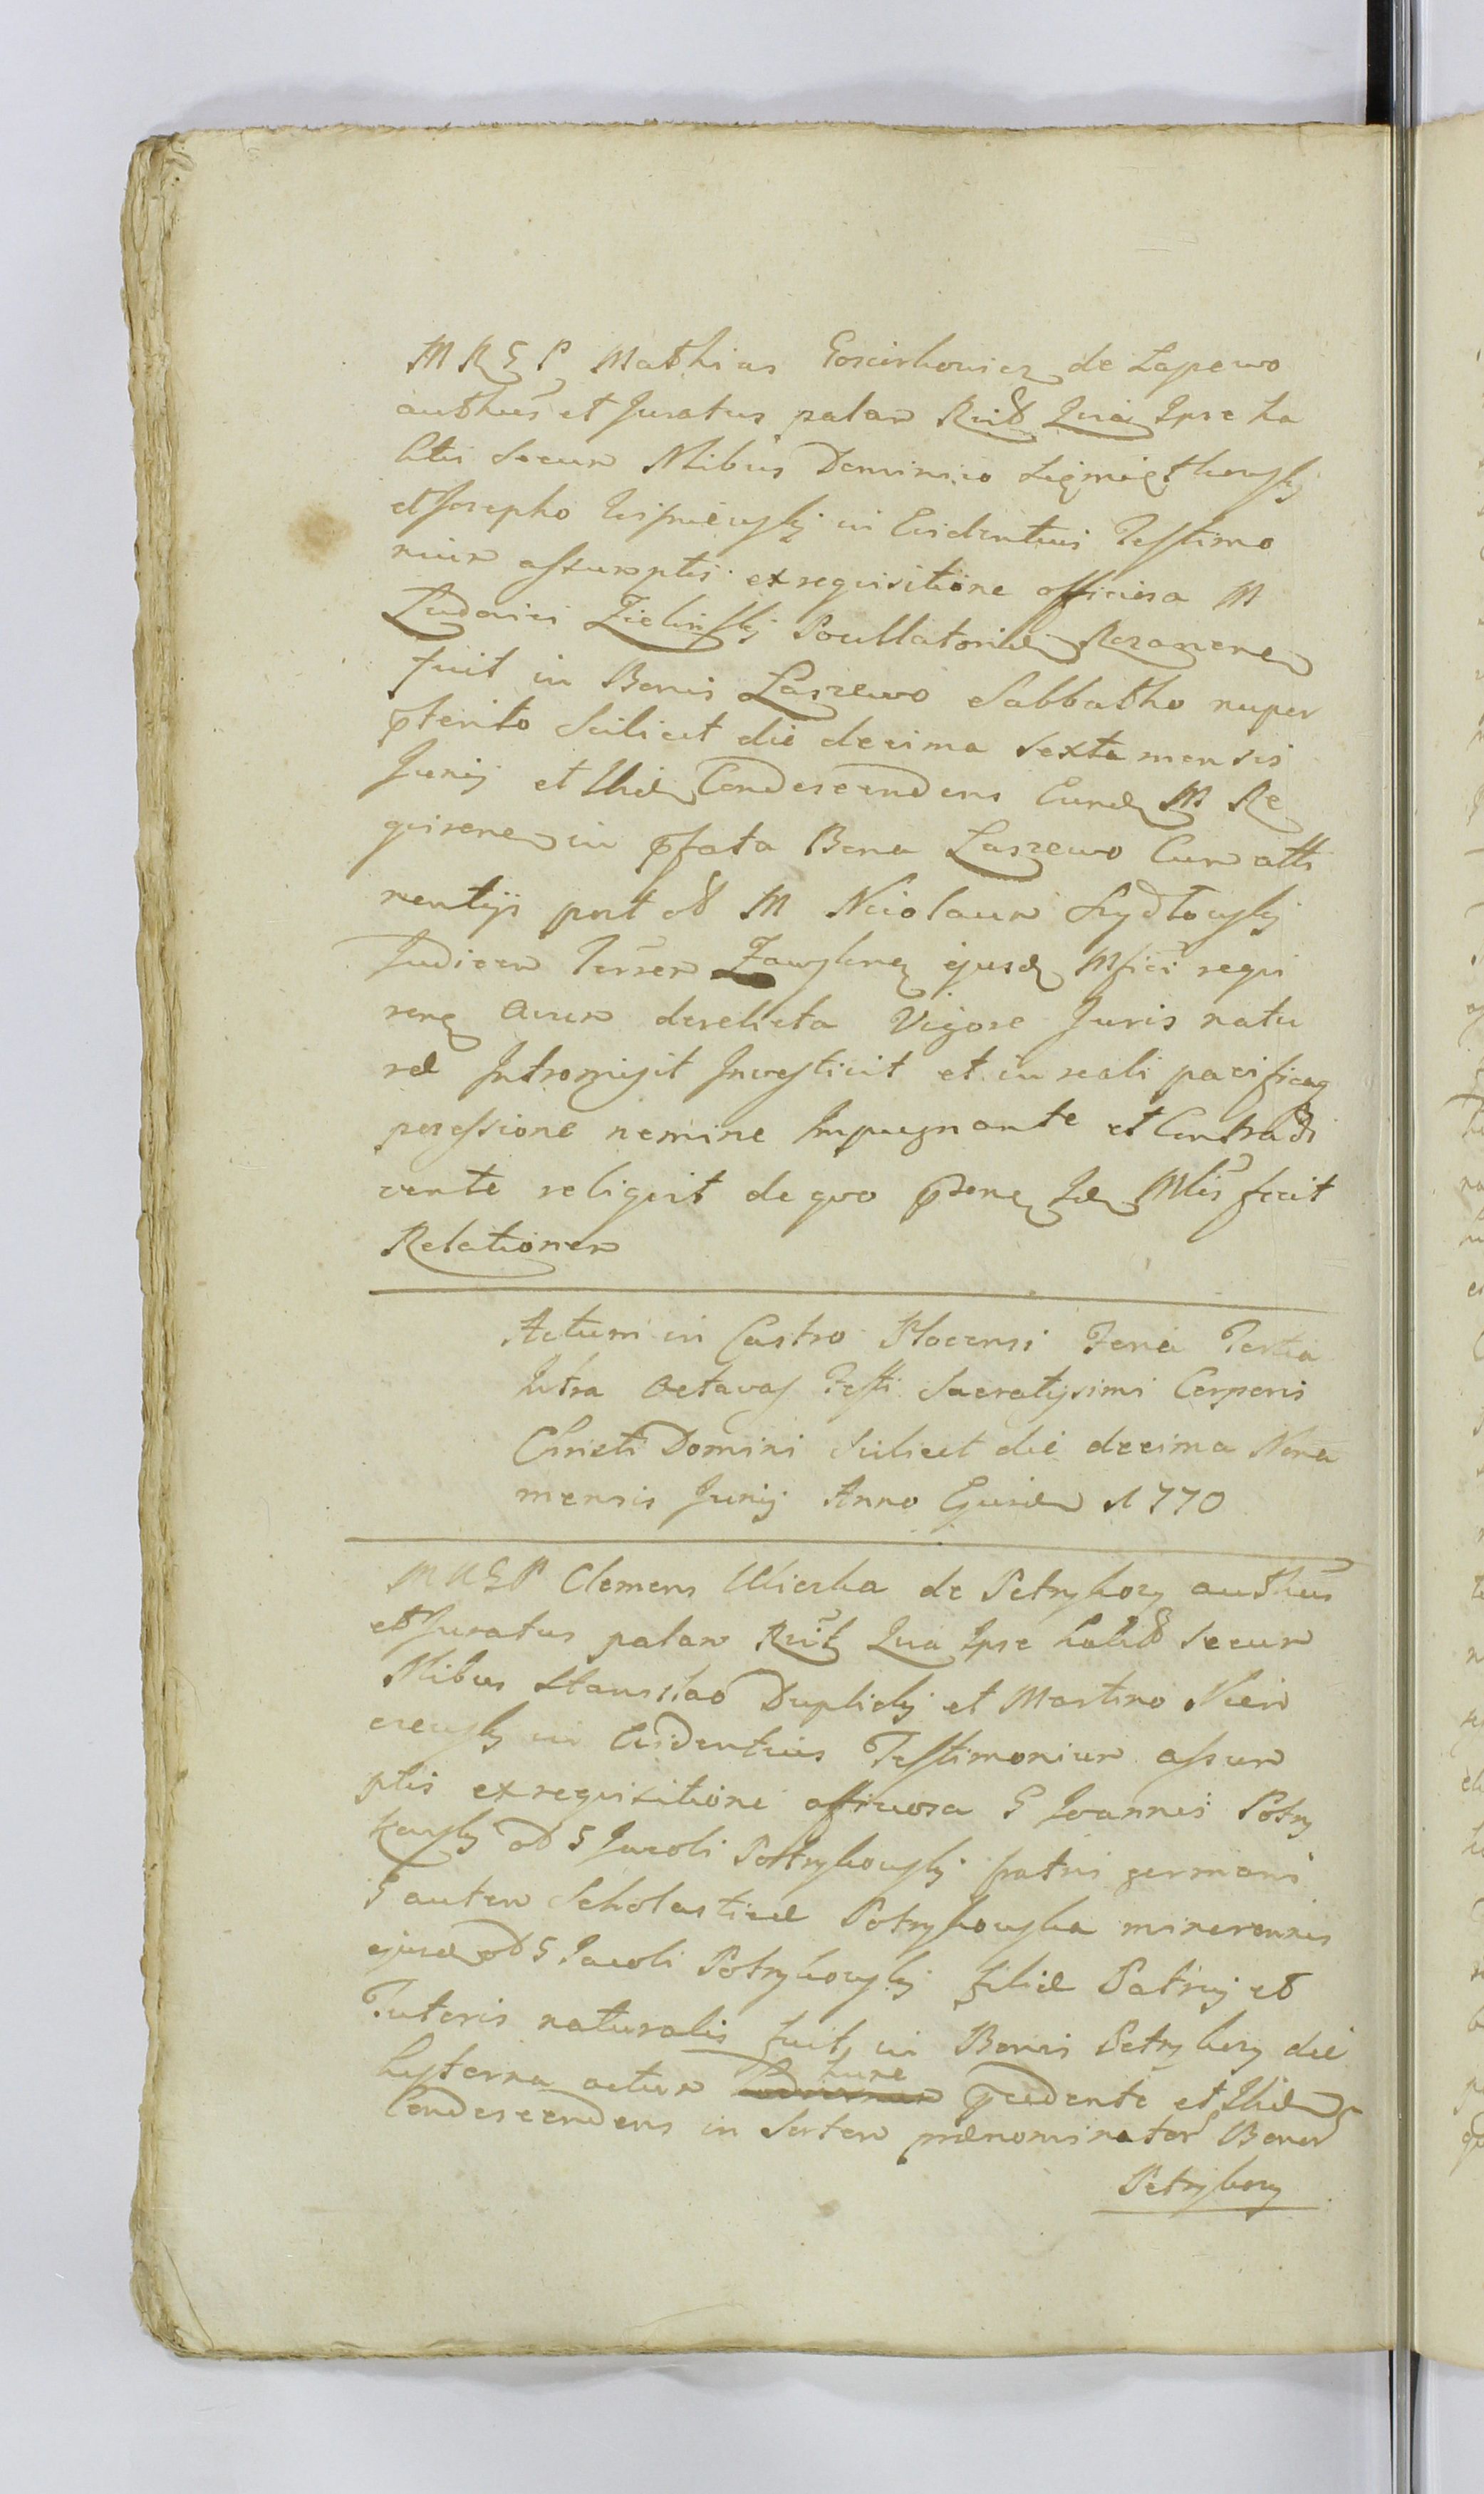 MRGP Mathias de Lapewo
authus et Juratus palam Qua Ipse ha
bitis secum Nlibus Dominico
et Josepho in Evidentius Testimo
nium assumptis ex requisitione officiosa M
Ludovici Zielinskj Pocillatoridæ Rozanen
fuit in Bonis Laszewo Sabbatho nuper
pterito Scilicet die decima sexta mensis
Junij et Ibid Condescendens Eund M Re
quiren in pfata Bona Laszewo Cum atti
nentijs post od M Nicolaum Szydłowskj
Judicem Terren Zawskrn ejusd Mfici requi
ren Avum derelicta Vigore Juris natu
ræ Intromisit Investivit et in reali pacificaq
possessione nemine Impugnante et Contradi
cente reliquit de quo psens Id Mlis fecit
Relationem
Actum in Castro Plocensi Feria Tertia
Intra Octavas Festi Sacratissimi Corporis
Christi Domini Scilicet die decima Nona
mensis Junij Anno Ejusd 1770
MRGP Clemens de Petrykozy authus
et Juratus palam Qua Ipse habit Secum
Nlibus Stanislao Duplickj et Martino Niem
czewskj in Evidentius Testimonium assum
ptis ex requisitione officiosa G Joannis Potry
kowskj od G Jacobi Potrykowskj fratris germani
G autem Scholasticæ Potrykowska minorennis
ejusd od G Jacobi Potrykowskj filiæ Patrui et
Tutoris naturalis fuit in Bonis Petrykozy die
hesterna actum hunc pcedente et Ibid
Condescendens in Sortem prænominator Bonor
Petrykozy